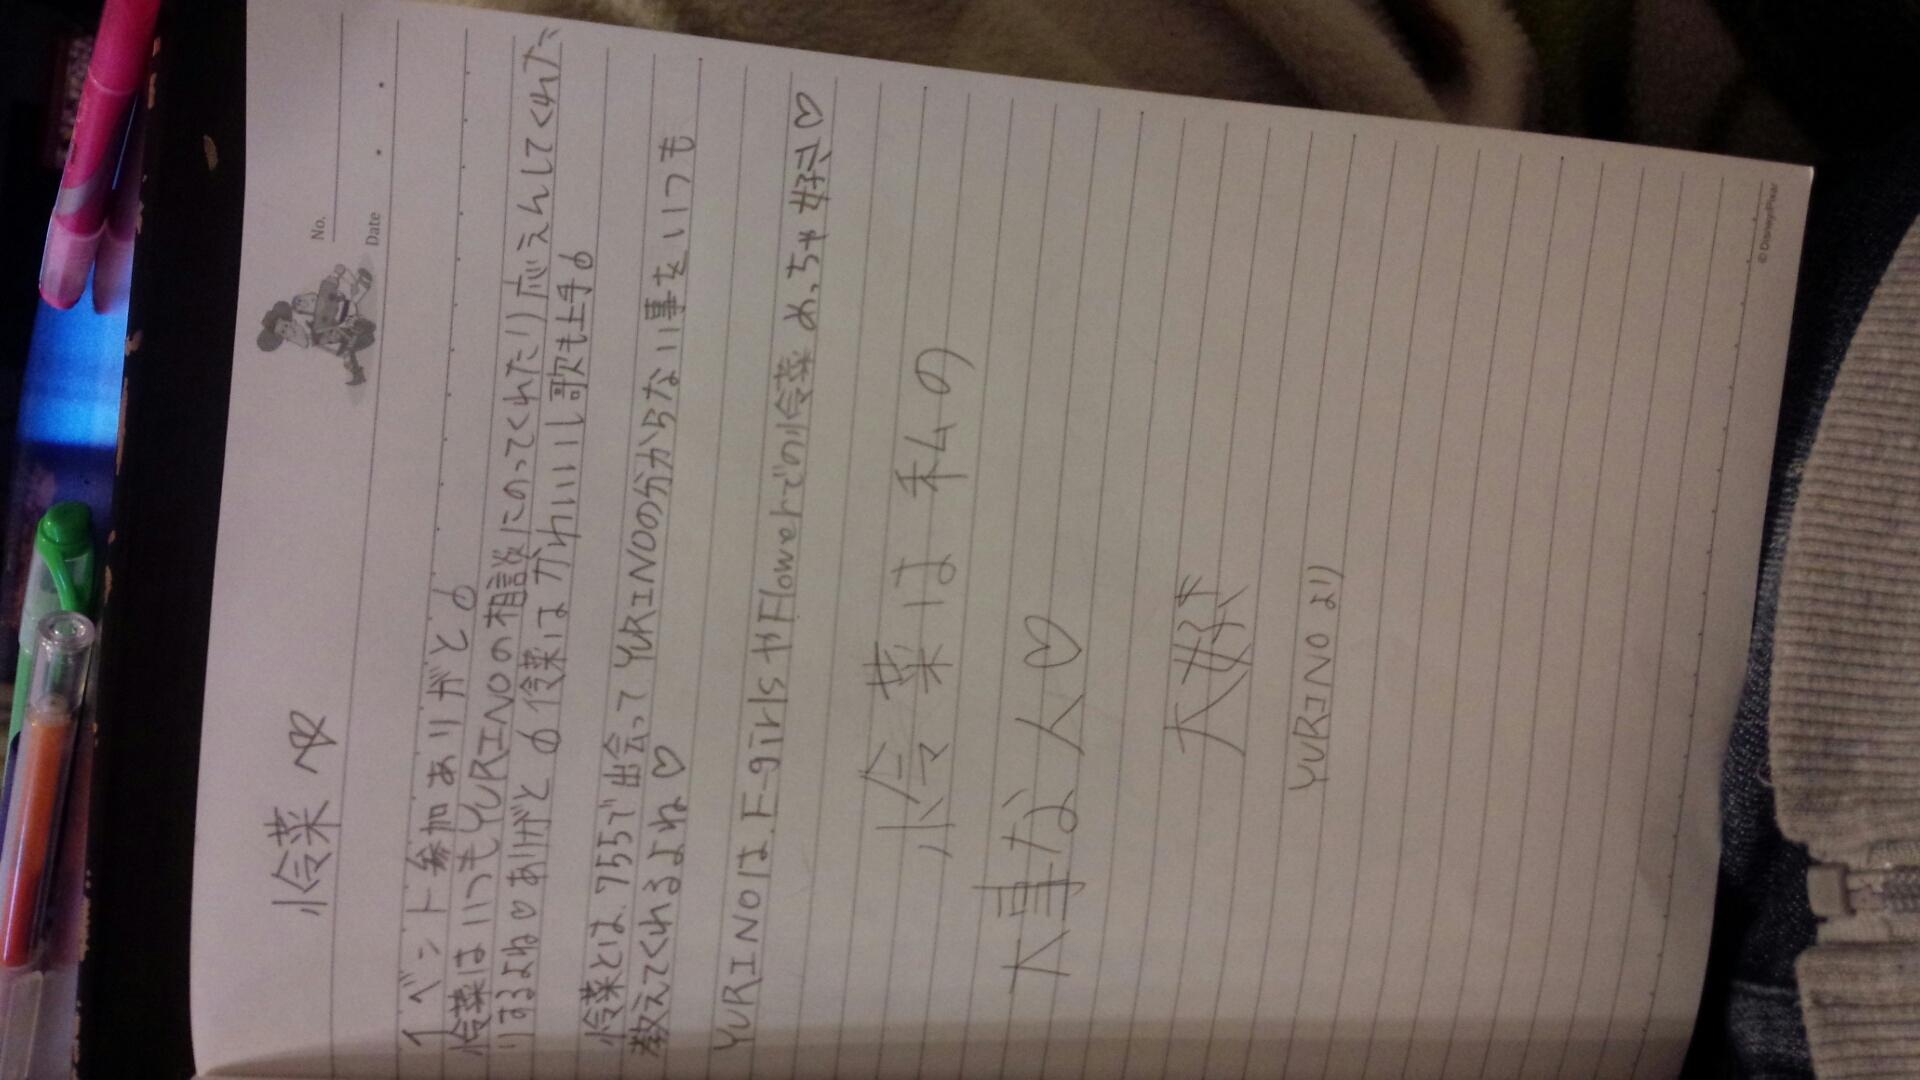 No.
Date
怜菜
イベント参加ありがと
怜菜はいつもYURINOの相談にのってくれたり応えんしてくれた
りするよね♡ありがと 怜菜はかわいいし歌も上手
怜菜とは755で出会ってYURINOの分からない事をいつも
教えてくれるよね♡
YURINOは E-girlsやFlowerでの怜菜 めっちゃ好き♡
怜菜は私の
大事な人♡
大好き
YURINOより
© Disney/Pixar